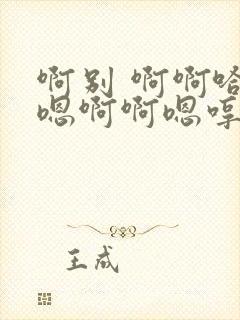 啊别 啊啊哈
嗯啊啊嗯哼
王成